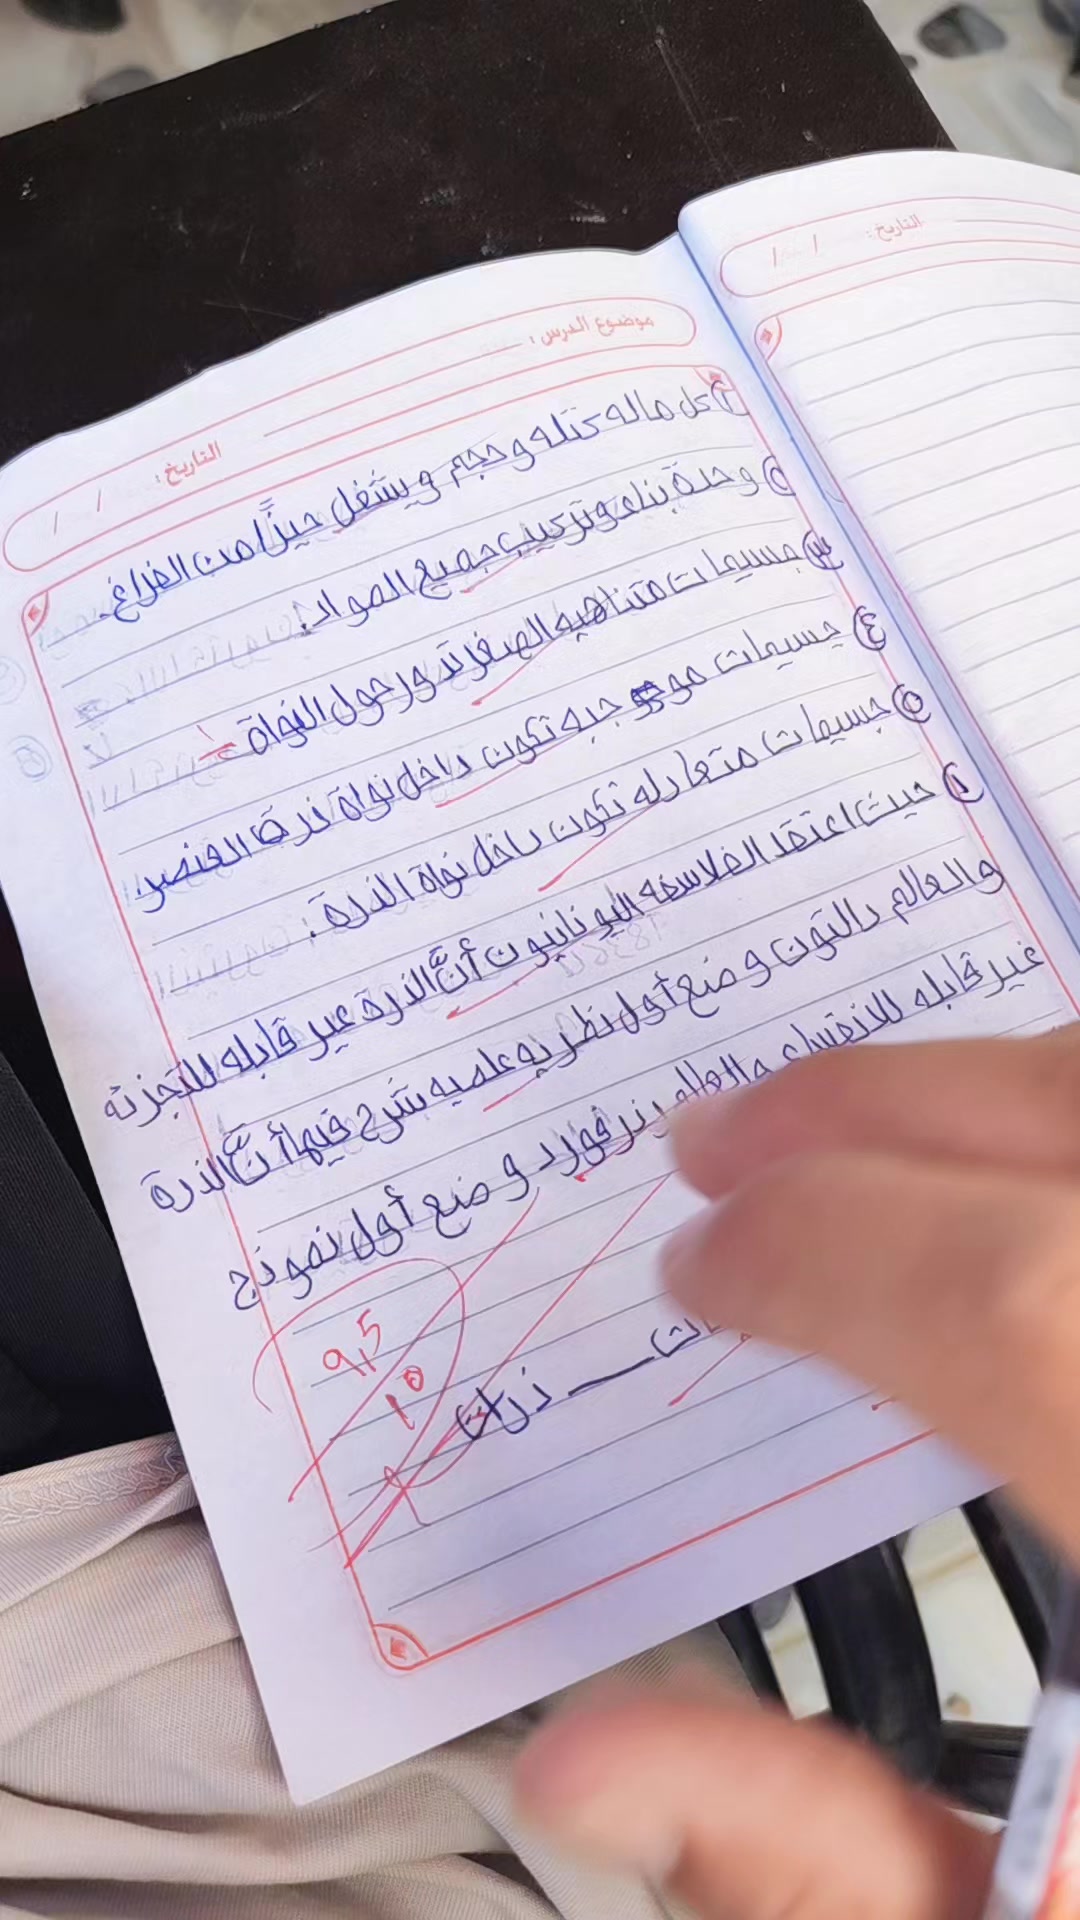 التاريخ: / /
موضوع الدرس:
التاريخ: / /
① كل ماله كتله وحجم ويشغل حيزًا من الفراغ.
② وحدة بناء وتركيب جميع المواد.
③ جسيمات متناهيه الصغر تدور حول النواة
④ جسيمات موجبه تكون داخل نواة ذرة العنصر.
⑤ جسيمات متعادله تكون داخل نواة الذرة.
حيث اعتقد الفلاسفه اليونانيون أنَّ الذرة غير قابله للتجزئه
والعالم دالتون وضع أول نظريه علميه شرح فيها أنَّ الذرة
غير قابله للانقسام والعالم رذرفورد وضع أول نموذج
ذرات
9,5
10